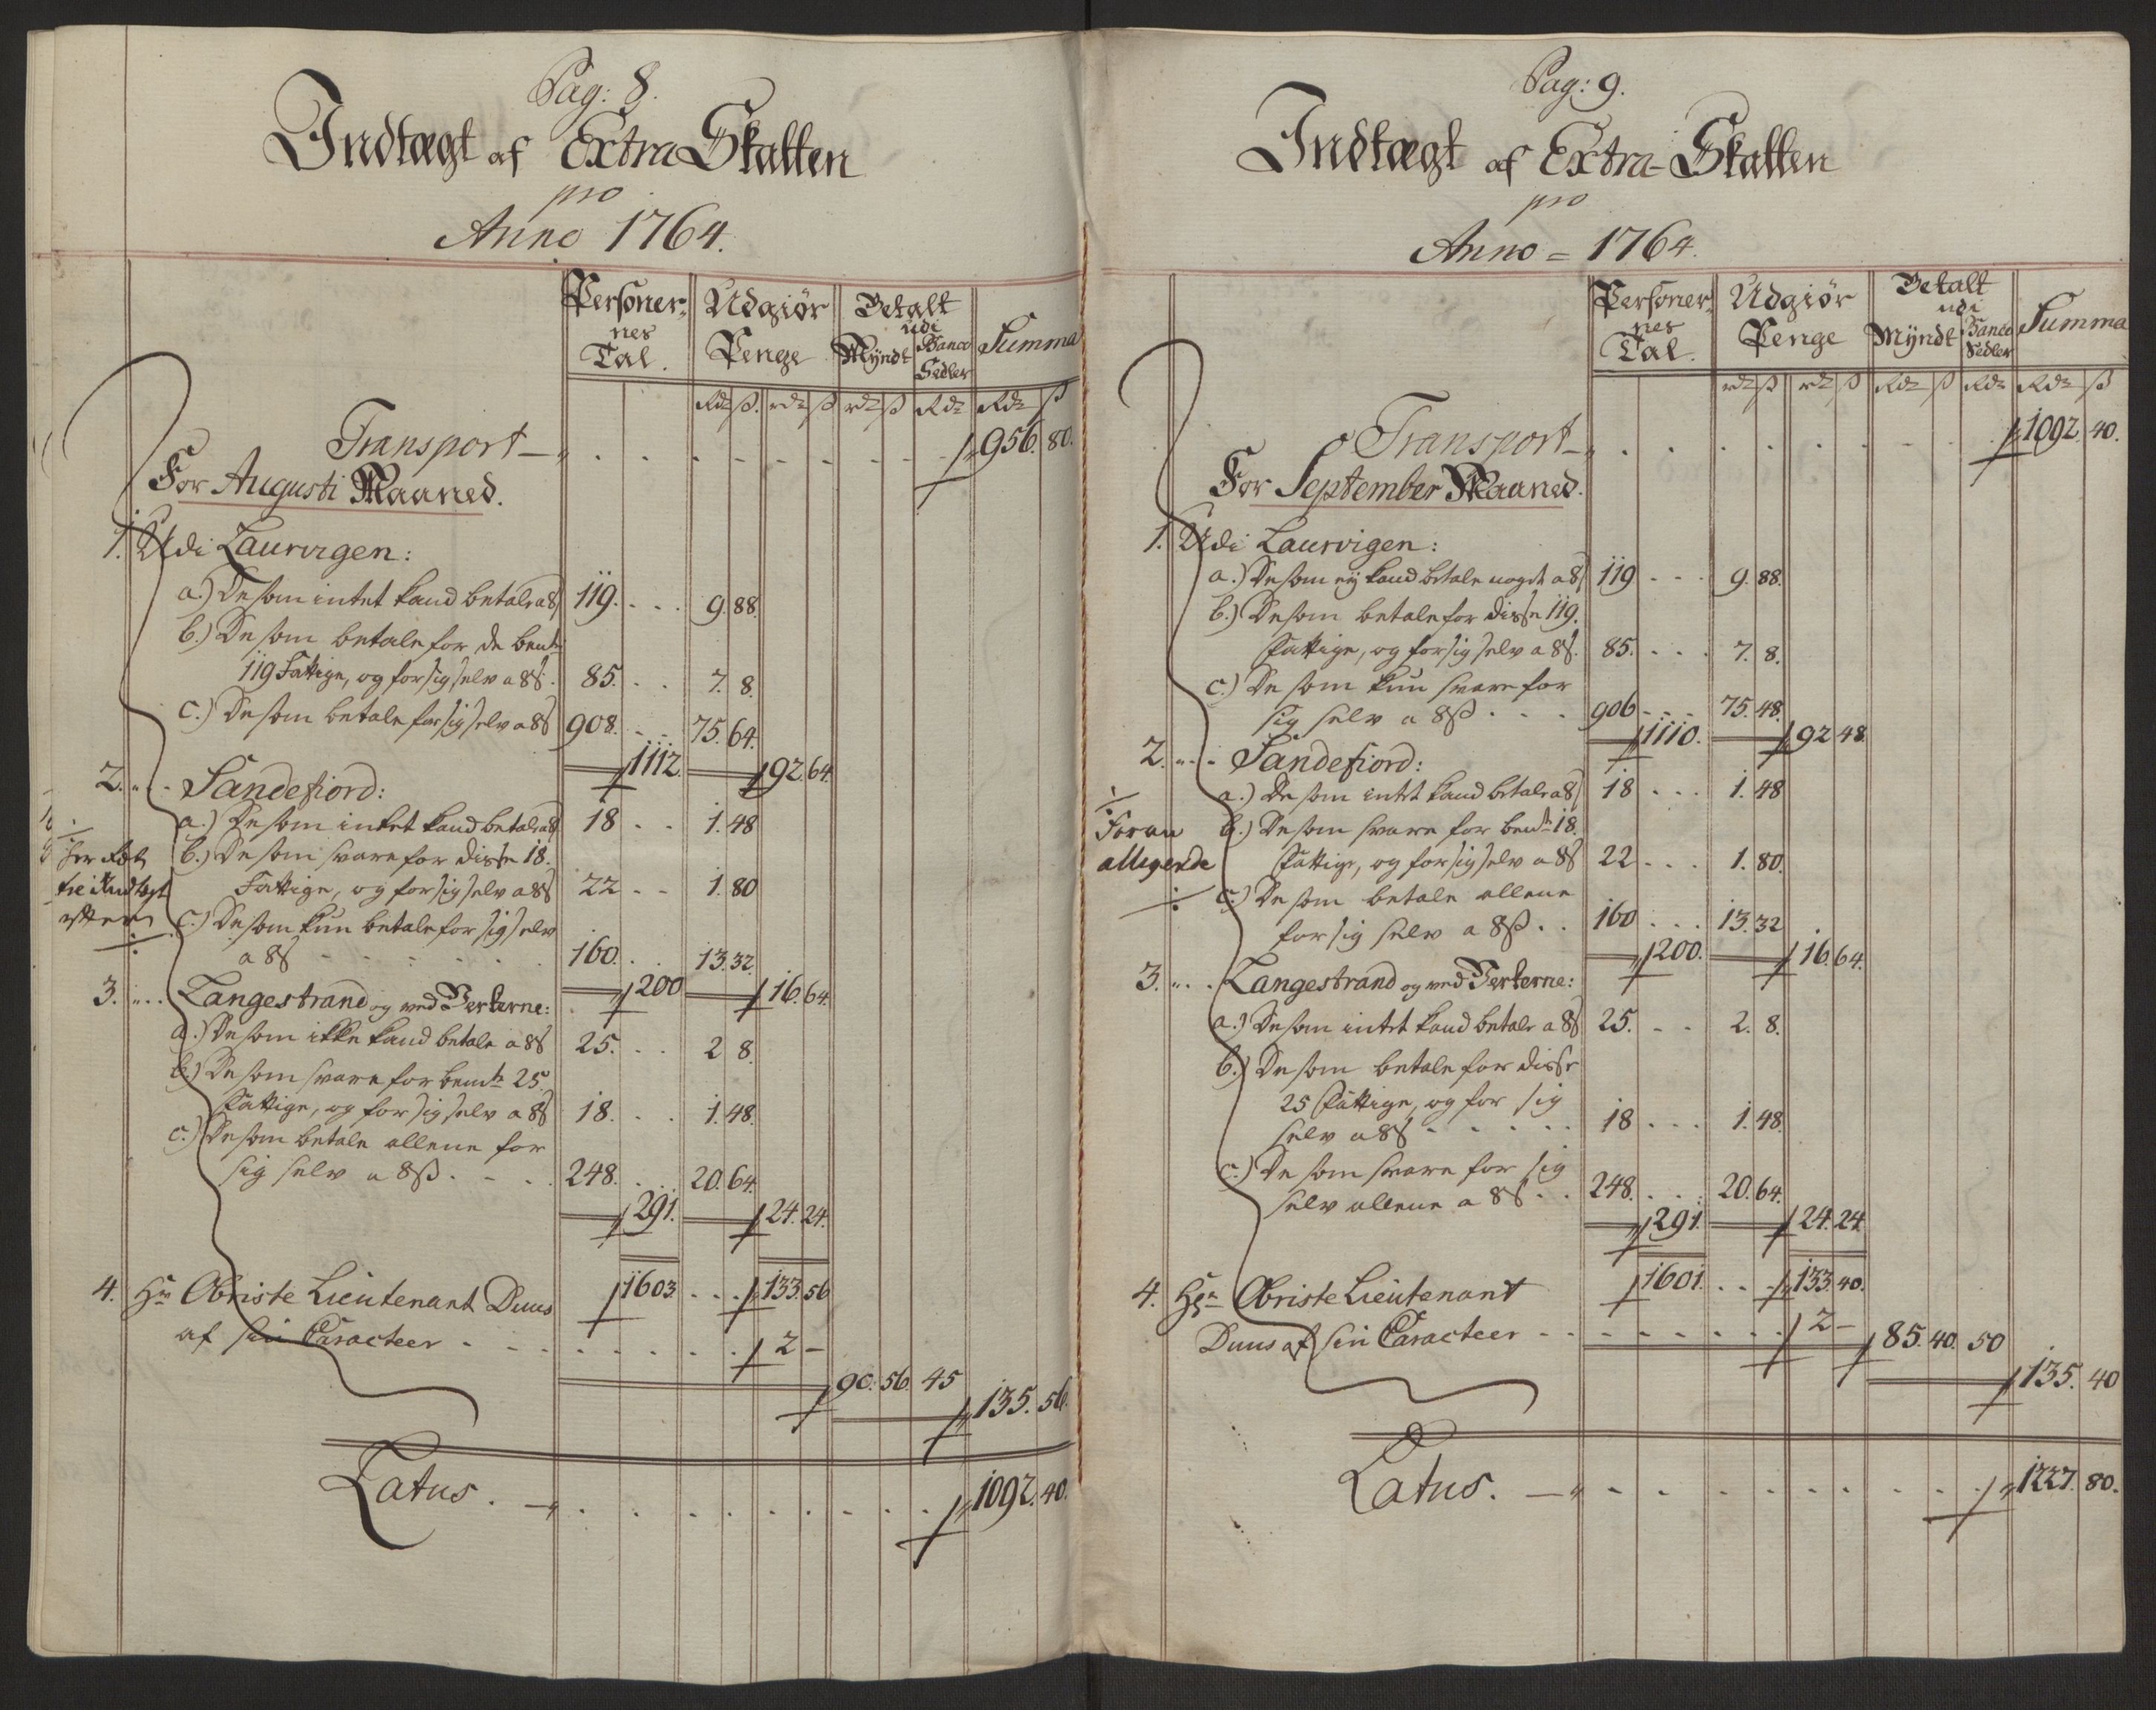 Pag: 8.
Indtægt af Extra Skatten
pro
Anno 1764.
Personer-
nes
Tal.
Udgiør
Penge
Betalt
udi
Myndt
Banco
Sedler
Summa
Rdr ß. rdr ß rdr ß Rdr Rdr ß
Transport 956. 80.
For Augusti Maaned.
1. Udi Laurvigen:
a.) De som intet kand betale a 8ß 119. 9. 88.
b.) De som betale for de bem:te
119 Fattige, og for sig selv a 8ß. 85. 7. 8.
c.) De som betale for sig selv a 8ß 908. 75. 64.
1112. 92. 64.
2. Sandefiord:
a.) De som intet kand betale a 8ß 18 1. 48
b.) De som svare for disse 18.
Fattige, og for sig selv a 8ß 22 1. 80
c.) De som kun betale for sig selv
a 8ß 160. 13. 32.
200 16. 64.
3. Langestrand og ved Verkerne:
a.) De som ikke kand betale a 8ß 25. 2 8.
b.) De som svare for bem:te 25.
Fattige, og for sig selv a 8ß 18. 1. 48.
c.) De som betale allene for
sig selv a 8ß. 248. 20. 64.
291. 24. 24.
1603 133. 56
4. Hr: Obriste Lieutenant Duus
af sin Caracteer 2 –
90. 56. 45
135. 56.
Latus. 1092. 40.
Pag: 9.
Indtægt af Extra-Skatten
pro
Anno = 1764.
Personer-
nes
Tal.
Udgiør
Penge
Betalt
udi
Myndt
Banco
Sedler
Summa
rdr ß rdr ß Rdr ß Rdr Rdr ß
Transport 1092. 40.
For September Maaned.
1. Udi Laurvigen:
a.) De som ey kand betale noget a 8ß 119 9. 88.
b.) De som betale for disse 119.
Fattige, og for sig selv a 8ß. 85. 7. 8.
c.) De som kun svare for
sig selv a 8ß 906 75. 48.
1110. 92 48
2. Sandefiord:
a.) De som intet kand betale a 8ß 18 1. 48
Foran
allegerede
b.) De som svare for bem:te 18.
Fattige, og for sig selv a 8ß 22 1. 80.
c.) De som betale allene
for sig selv a 8ß. 160 13. 32
200. 16. 64.
3. Langestrand og ved Verkerne:
a.) De som intet kand betale a 8ß 25. 2. 8.
b.) De som betale for disse
25 Fattige, og for sig
selv a 8ß 18 1. 48.
c.) De som svare for sig
selv allene a 8ß 248. 20. 64.
291. 24. 24
1601. 133. 40.
4. Hr: Obriste Lieutenant
Duus af sin Caracteer 2 –
85. 40. 50
135. 40
Latus. 1227. 80.